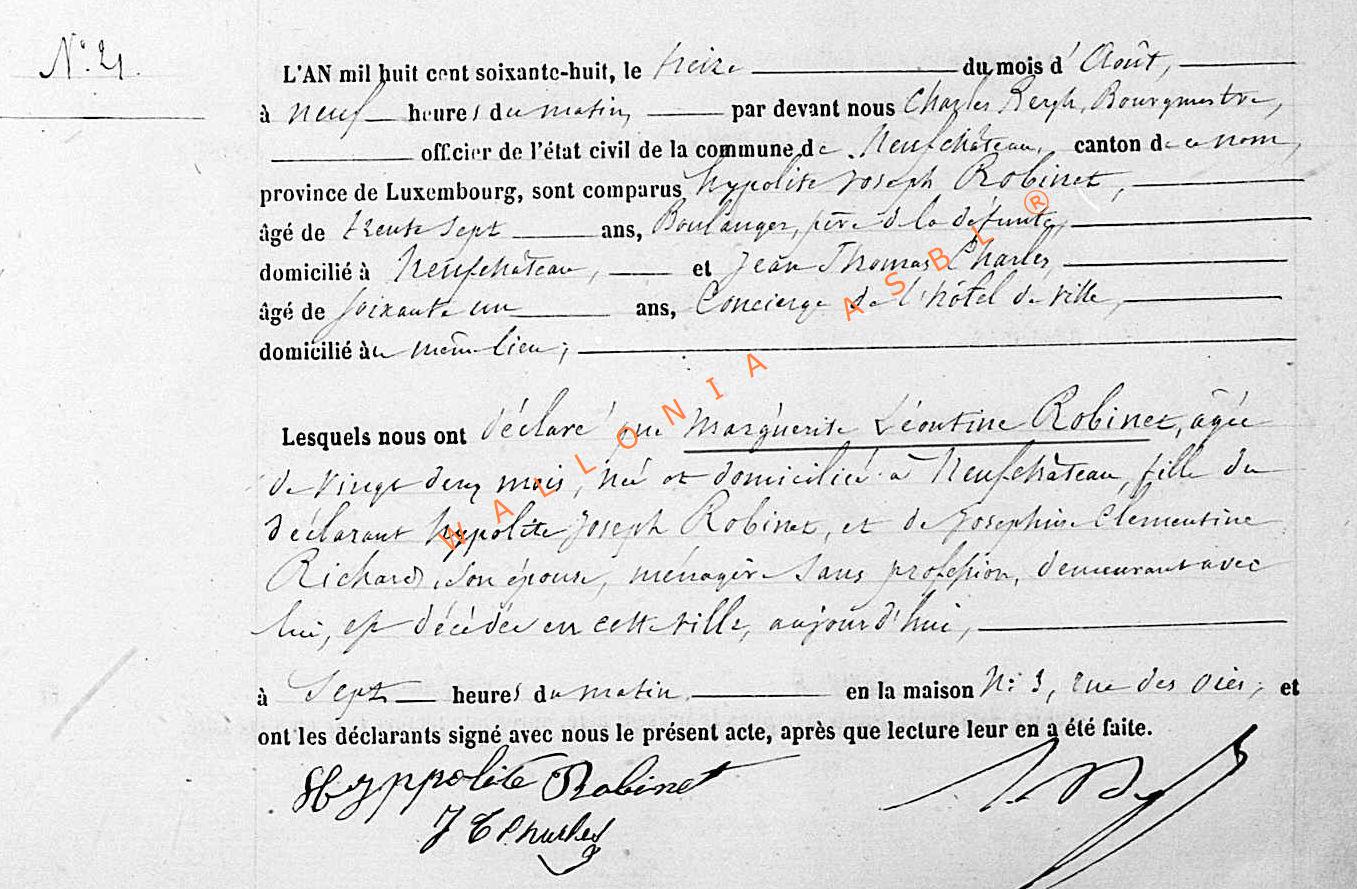 N° 21.
L'AN mil huit cent soixante-huit, le treize du mois d'Août,
à neuf heures du matin, par devant nous Charles Bergh, Bourgmestre,
officier de l'état civil de la commune de Neufchâteau, canton de ce nom,
province de Luxembourg, sont comparus hypolite Joseph Robinet,
âgé de trente sept ans, Boulanger, père de la défunte,
domicilié à Neufchâteau, et Jean Thomas Charles,
âgé de soixante un ans, Concierge de l'hôtel de ville,
domicilié au même lieu;
Lesquels nous ont déclaré que Marguerite Léontine Robinet, âgée
de vingt deux mois, née et domiciliée à Neufchâteau, fille du
déclarant hypolite Joseph Robinet, et de Josephine Clementine
Richard, son épouse, ménagère sans profession, demeurant avec
lui, est décédée en cette ville, aujourd'hui,
à sept heures du matin en la maison N° 3, rue des Oies, et
ont les déclarants signé avec nous le présent acte, après que lecture leur en a été faite.
Hyppolite Robinet
J T Charles
WALLONIA ASBL ®